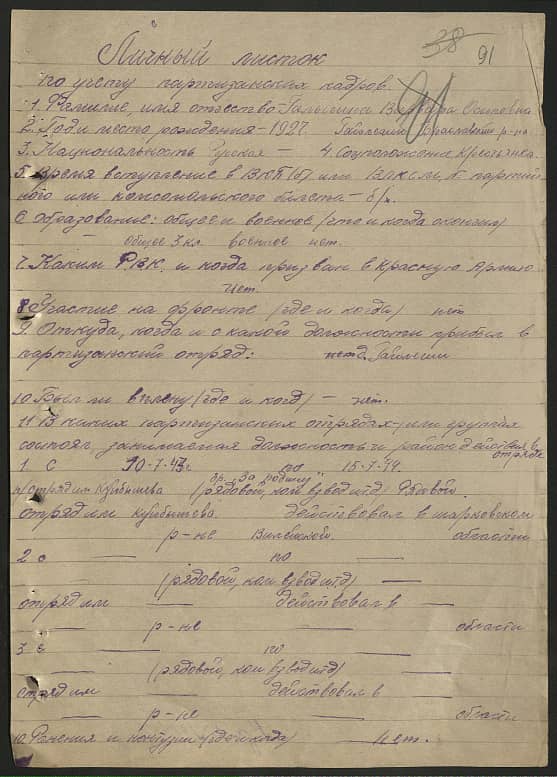 38
91
Личный листок
по учету партизанских кадров.
1. Фамилие, имя отчество Осиповна
2. Год и место рождения – 1927. р-на
3. Национальность Русская – 4. Соцположение крестьянка
5. Время вступление в ВКП(б) или ВЛКСМ, № партий
ного или комсомольского билета – б/п.
6 Образование: общее и военное (что и когда окончил)
– общее 3 кл. военное нет.
7. Каким РВК. и когда призван в Красную Армию
нет.
8 Участие на фронте (где и когда) нет
9. Откуда, когда и с какой должности прибыл в
партизанский отряд:
10 Был ли в плену (где и когд) – нет.
11 В каких партизанских отрядах или группах
состоял, занимаемая должность и район действия в
отряде
1. С 10-7-43г. по 15-7-44.
бр. "За родину"
п/отряд им Куйбышева (рядовой, ком взвод итд) Рядовой.
отряд им Куйбышева. действовал в шарковском
р-не Вилейской. области
2 с — по —
(рядовой, ком взвод итд) —
отряд им — действовал в —
— р-не — области
3 с — по —
— (рядовой, ком взвод итд) —
отряд им — действовал в
— р-не — области
10. Ранения и контузии (где и когда) — нет.